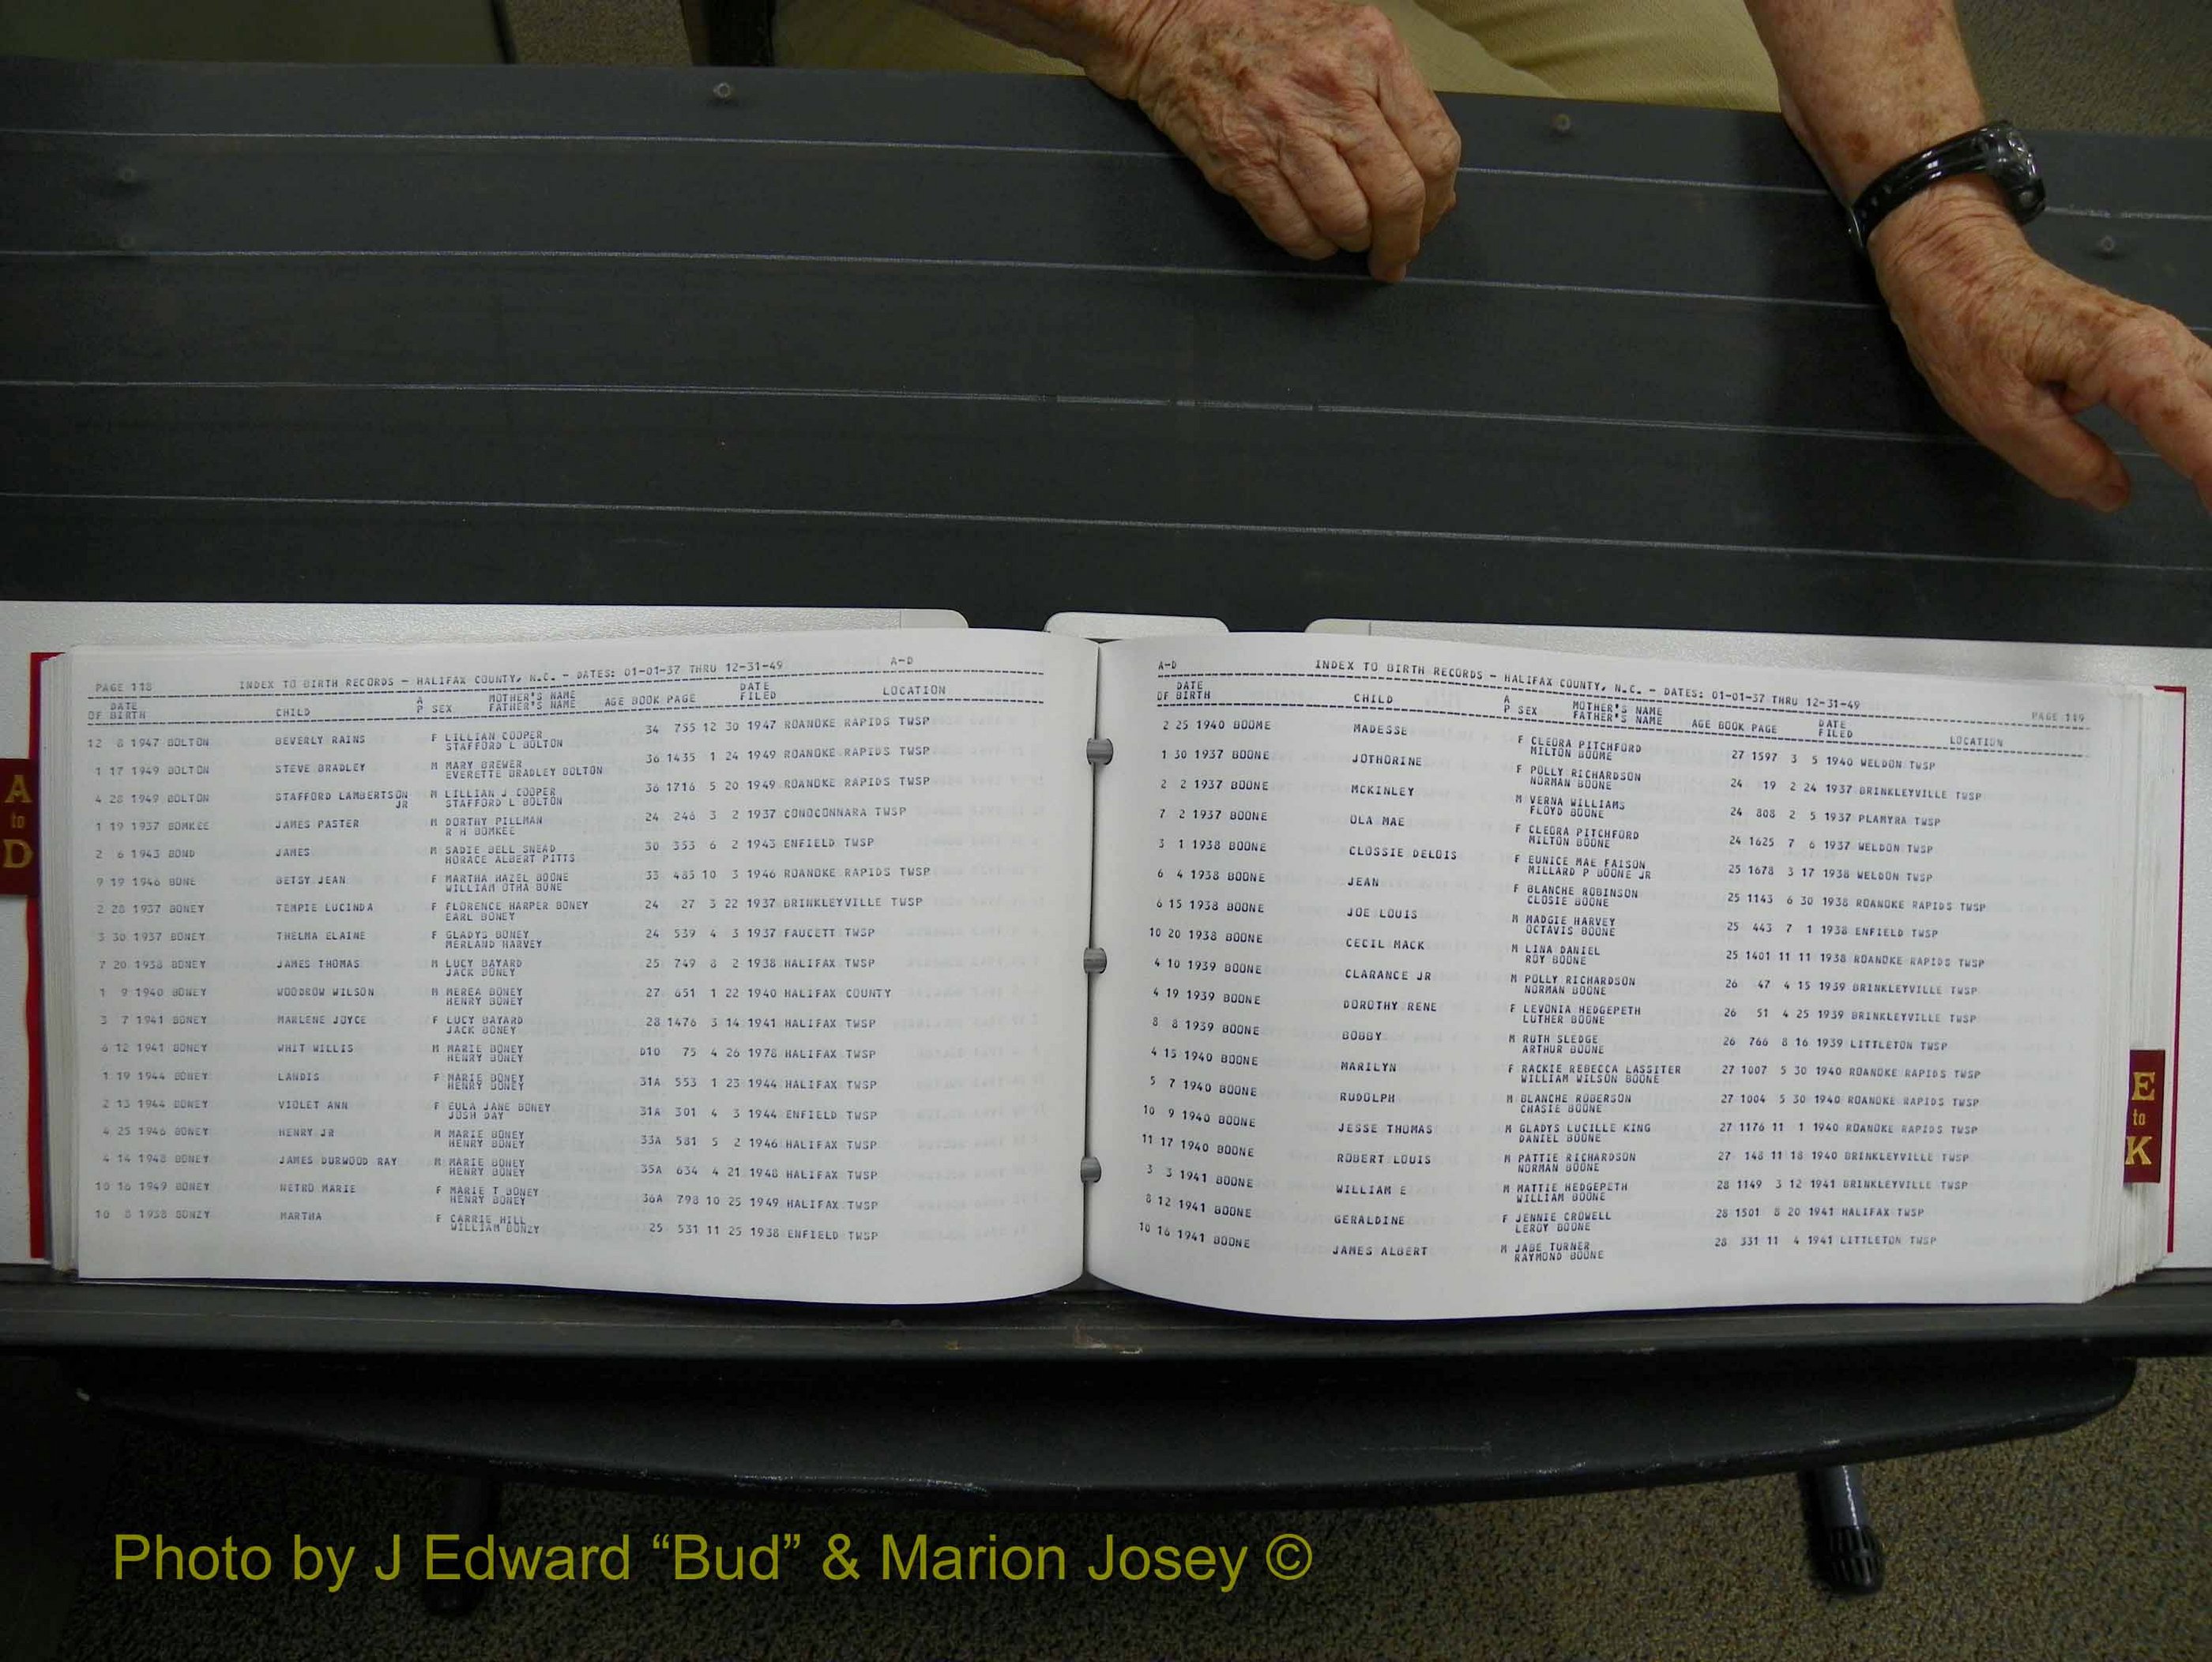 PAGE 118 INDEX TO BIRTH RECORDS - HALIFAX COUNTY, N.C. - DATES: 01-01-37 THRU 12-31-49 A-D
DATE OF BIRTH CHILD A P SEX MOTHER'S NAME FATHER'S NAME AGE BOOK PAGE DATE FILED LOCATION
12 8 1947 BOLTON BEVERLY RAINS F LILLIAN COOPER 34 755 12 30 1947 ROANOKE RAPIDS TWSP
STAFFORD L BOLTON
1 17 1949 BOLTON STEVE BRADLEY M MARY BREWER 36 1435 1 24 1949 ROANOKE RAPIDS TWSP
EVERETTE BRADLEY BOLTON
4 28 1949 BOLTON STAFFORD LAMBERTSON M LILLIAN J COOPER 36 1716 5 20 1949 ROANOKE RAPIDS TWSP
JR STAFFORD L BOLTON
1 19 1937 BOMKEE JAMES PASTER M DORTHY PILLMAN 24 246 3 2 1937 CONOCONNARA TWSP
R H BOMKEE
2 6 1943 BOND JAMES M SADIE BELL SNEAD 30 353 6 2 1943 ENFIELD TWSP
HORACE ALBERT PITTS
9 19 1946 BONE BETSY JEAN F MARTHA HAZEL BOONE 33 485 10 3 1946 ROANOKE RAPIDS TWSP
WILLIAM OTHA BONE
2 28 1937 BONEY TEMPIE LUCINDA F FLORENCE HARPER BONEY 24 27 3 22 1937 BRINKLEYVILLE TWSP
EARL BONEY
3 30 1937 BONEY THELMA ELAINE F GLADYS BONEY 24 539 4 3 1937 FAUCETT TWSP
MERLAND HARVEY
7 20 1938 BONEY JAMES THOMAS M LUCY BAYARD 25 749 8 2 1938 HALIFAX TWSP
JACK BONEY
1 9 1940 BONEY WOODROW WILSON M MEREA BONEY 27 651 1 22 1940 HALIFAX COUNTY
HENRY BONEY
3 7 1941 BONEY MARLENE JOYCE F LUCY BAYARD 28 1476 3 14 1941 HALIFAX TWSP
JACK BONEY
6 12 1941 BONEY WHIT WILLIS M MARIE BONEY D10 75 4 26 1978 HALIFAX TWSP
HENRY BONEY
1 19 1944 BONEY LANDIS F MARIE BONEY 31A 553 1 23 1944 HALIFAX TWSP
HENRY BONEY
2 13 1944 BONEY VIOLET ANN F EULA JANE BONEY 31A 301 4 3 1944 ENFIELD TWSP
JOSH DAY
4 25 1946 BONEY HENRY JR M MARIE BONEY 33A 581 5 2 1946 HALIFAX TWSP
HENRY BONEY
4 14 1948 BONEY JAMES DURWOOD RAY M MARIE BONEY 35A 634 4 21 1948 HALIFAX TWSP
HENRY BONEY
10 16 1949 BONEY NETRO MARIE F MARIE T BONEY 36A 798 10 25 1949 HALIFAX TWSP
HENRY BONEY
10 8 1938 BONZY MARTHA F CARRIE HILL 25 531 11 25 1938 ENFIELD TWSP
WILLIAM BONZY
A-D INDEX TO BIRTH RECORDS - HALIFAX COUNTY, N.C. - DATES: 01-01-37 THRU 12-31-49 PAGE 119
DATE OF BIRTH CHILD A P SEX MOTHER'S NAME FATHER'S NAME AGE BOOK PAGE DATE FILED LOCATION
2 25 1940 BOOME MADESSE F CLEORA PITCHFORD 27 1597 3 5 1940 WELDON TWSP
MILTON BOOME
1 30 1937 BOONE JOTHORINE F POLLY RICHARDSON 24 19 2 24 1937 BRINKLEYVILLE TWSP
NORMAN BOONE
2 2 1937 BOONE MCKINLEY M VERNA WILLIAMS 24 808 2 5 1937 PLAMYRA TWSP
FLOYD BOONE
7 2 1937 BOONE OLA MAE F CLEORA PITCHFORD 24 1625 7 6 1937 WELDON TWSP
MILTON BOONE
3 1 1938 BOONE CLOSSIE DELOIS F EUNICE MAE FAISON 25 1678 3 17 1938 WELDON TWSP
MILLARD P BOONE JR
6 4 1938 BOONE JEAN F BLANCHE ROBINSON 25 1143 6 30 1938 ROANOKE RAPIDS TWSP
CLOSIE BOONE
6 15 1938 BOONE JOE LOUIS M MADGIE HARVEY 25 443 7 1 1938 ENFIELD TWSP
OCTAVIS BOONE
10 20 1938 BOONE CECIL MACK M LINA DANIEL 25 1401 11 11 1938 ROANOKE RAPIDS TWSP
ROY BOONE
4 10 1939 BOONE CLARANCE JR M POLLY RICHARDSON 26 47 4 15 1939 BRINKLEYVILLE TWSP
NORMAN BOONE
4 19 1939 BOONE DOROTHY RENE F LEVONIA HEDGEPETH 26 51 4 25 1939 BRINKLEYVILLE TWSP
LUTHER BOONE
8 8 1939 BOONE BOBBY M RUTH SLEDGE 26 766 8 16 1939 LITTLETON TWSP
ARTHUR BOONE
4 15 1940 BOONE MARILYN F RACKIE REBECCA LASSITER 27 1007 5 30 1940 ROANOKE RAPIDS TWSP
WILLIAM WILSON BOONE
5 7 1940 BOONE RUDOLPH M BLANCHE ROBERSON 27 1004 5 30 1940 ROANOKE RAPIDS TWSP
CHASIE BOONE
10 9 1940 BOONE JESSE THOMAS M GLADYS LUCILLE KING 27 1176 11 1 1940 ROANOKE RAPIDS TWSP
DANIEL BOONE
11 17 1940 BOONE ROBERT LOUIS M PATTIE RICHARDSON 27 148 11 18 1940 BRINKLEYVILLE TWSP
NORMAN BOONE
3 3 1941 BOONE WILLIAM E M MATTIE HEDGEPETH 28 1149 3 12 1941 BRINKLEYVILLE TWSP
WILLIAM BOONE
8 12 1941 BOONE GERALDINE F JENNIE CROWELL 28 1501 8 20 1941 HALIFAX TWSP
LEROY BOONE
10 16 1941 BOONE JAMES ALBERT M JABE TURNER 28 331 11 4 1941 LITTLETON TWSP
RAYMOND BOONE
A
to
D
E
to
K
Photo by J Edward “Bud” & Marion Josey ©